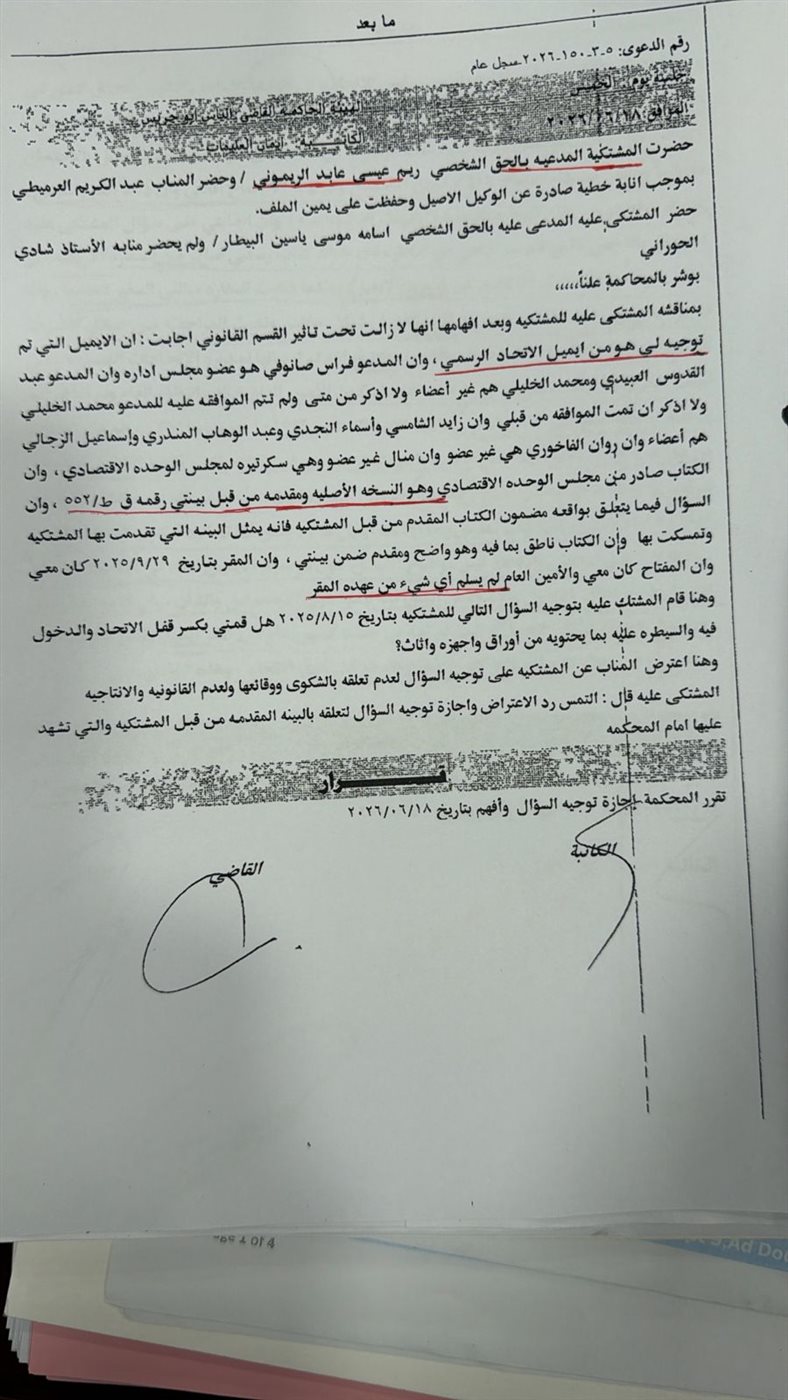 ما بعد
رقم الدعوى: ٥-٣-١٥٠-٢٠٢٦-سجل عام
جلسة يوم: الخميس
الهيئة الحاكمة القاضي
الموافق: ٢٠٢٦/٠٦/١٨
الكاتبة: ايمان
حضرت المشتكية المدعيه بالحق الشخصي ريم عيسى عابد الريموني / وحضر المناب عبد الكريم العرميطي
بموجب انابة خطية صادرة عن الوكيل الاصيل وحفظت على يمين الملف.
حضر المشتكى عليه المدعى عليه بالحق الشخصي اسامه موسى ياسين البيطار / ولم يحضر منابه الأستاذ شادي
الحوراني
بوشر بالمحاكمة علناً،،،،،
بمناقشه المشتكى عليه للمشتكيه وبعد افهامها انها لا زالت تحت تاثير القسم القانوني اجابت : ان الايميل التي تم
توجيه لي هو من ايميل الاتحاد الرسمي ، وان المدعو فراس صانوفي هو عضو مجلس اداره وان المدعو عبد
القدوس العبيدي ومحمد الخليلي هم غير أعضاء ولا اذكر من متى ولم تتم الموافقه عليه للمدعو محمد الخليلي
ولا اذكر ان تمت الموافقه من قبلي وان زايد الشامسي وأسماء النجدي وعبد الوهاب المنذري وإسماعيل الزجالي
هم أعضاء وان روان الفاخوري هي غير عضو وان منال غير عضو وهي سكرتيره لمجلس الوحده الاقتصادي ، وان
الكتاب صادر من مجلس الوحده الاقتصادي وهو النسخه الأصليه ومقدمه من قبل بينتي رقمه ق ط/٥٥٢ ، وان
السؤال فيما يتعلق بواقعه مضمون الكتاب المقدم من قبل المشتكيه فانه يمثل البينه التي تقدمت بها المشتكيه
وتمسكت بها وإن الكتاب ناطق بما فيه وهو واضح ومقدم ضمن بينتي ، وان المقر بتاريخ ٢٠٢٥/٩/٢٩ كان معي
وان المفتاح كان معي والأمين العام لم يسلم أي شيء من عهده المقر
وهنا قام المشتكى عليه بتوجيه السؤال التالي للمشتكيه بتاريخ ٢٠٢٥/٨/١٥ هل قمتي بكسر قفل الاتحاد والدخول
فيه والسيطره عليه بما يحتويه من أوراق واجهزه واثاث؟
وهنا اعترض المناب عن المشتكيه على توجيه السؤال لعدم تعلقه بالشكوى ووقائعها ولعدم القانونيه والانتاجيه
المشتكى عليه قال : التمس رد الاعتراض واجازة توجيه السؤال لتعلقه بالبينه المقدمه من قبل المشتكيه والتي تشهد
عليها امام المحكمه
قـــــرار
تقرر المحكمة إجازة توجيه السؤال وأفهم بتاريخ ٢٠٢٦/٠٦/١٨
الكاتبة
القاضي